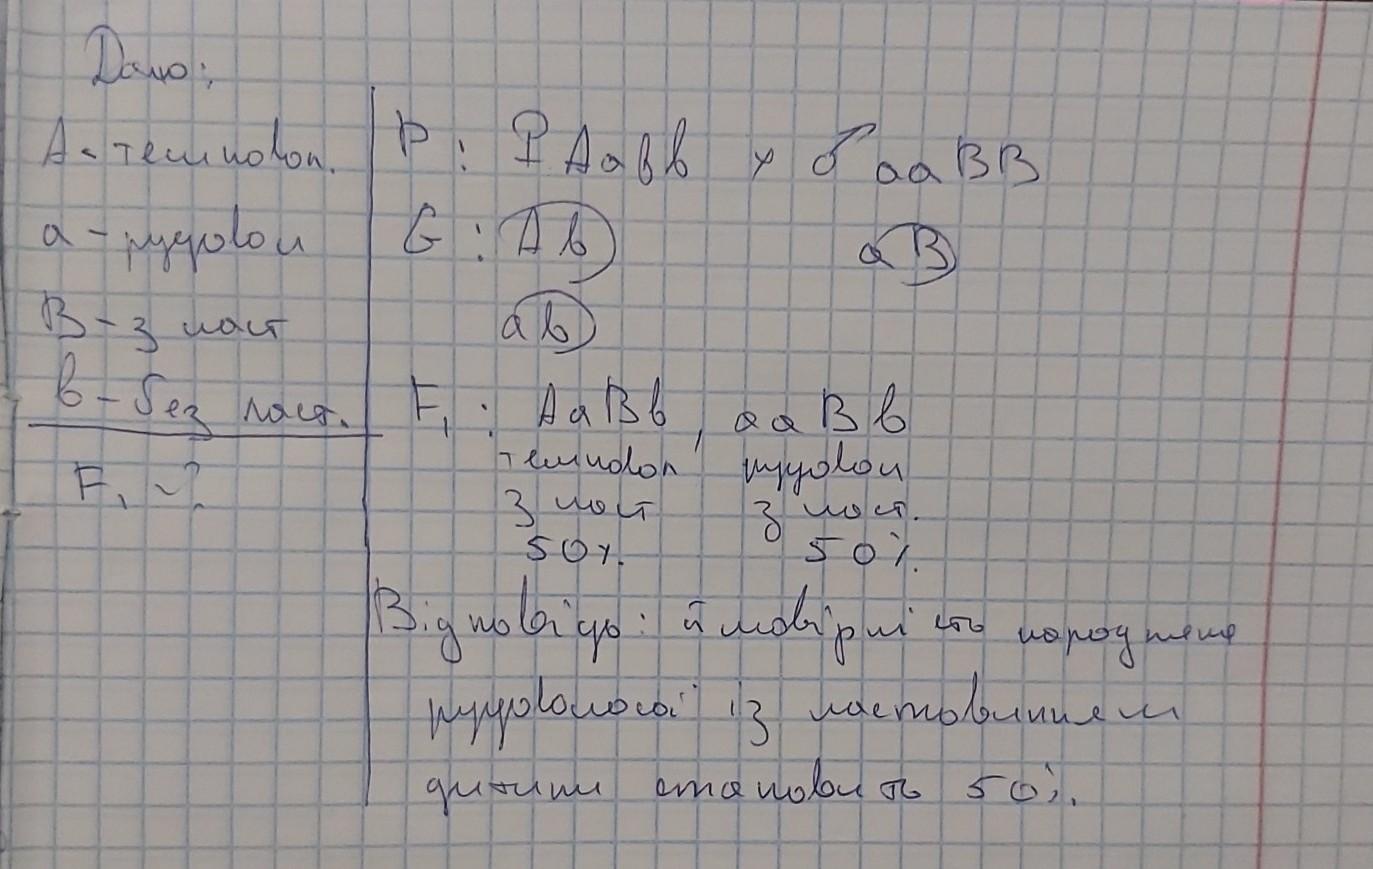 Дано:
А - темновол.
а - рудовол
В - з ласт
в - без ласт.
F₁ - ?
P : ♀ Aaвв × ♂ aaBB
G : Aв aB
aв
F₁ : AaBв, aaBв
темновол рудовол
з ласт з ласт.
50% 50%.
Відповідь: ймовірність народження
рудоволосої із ластовинням
дитини становить 50%.